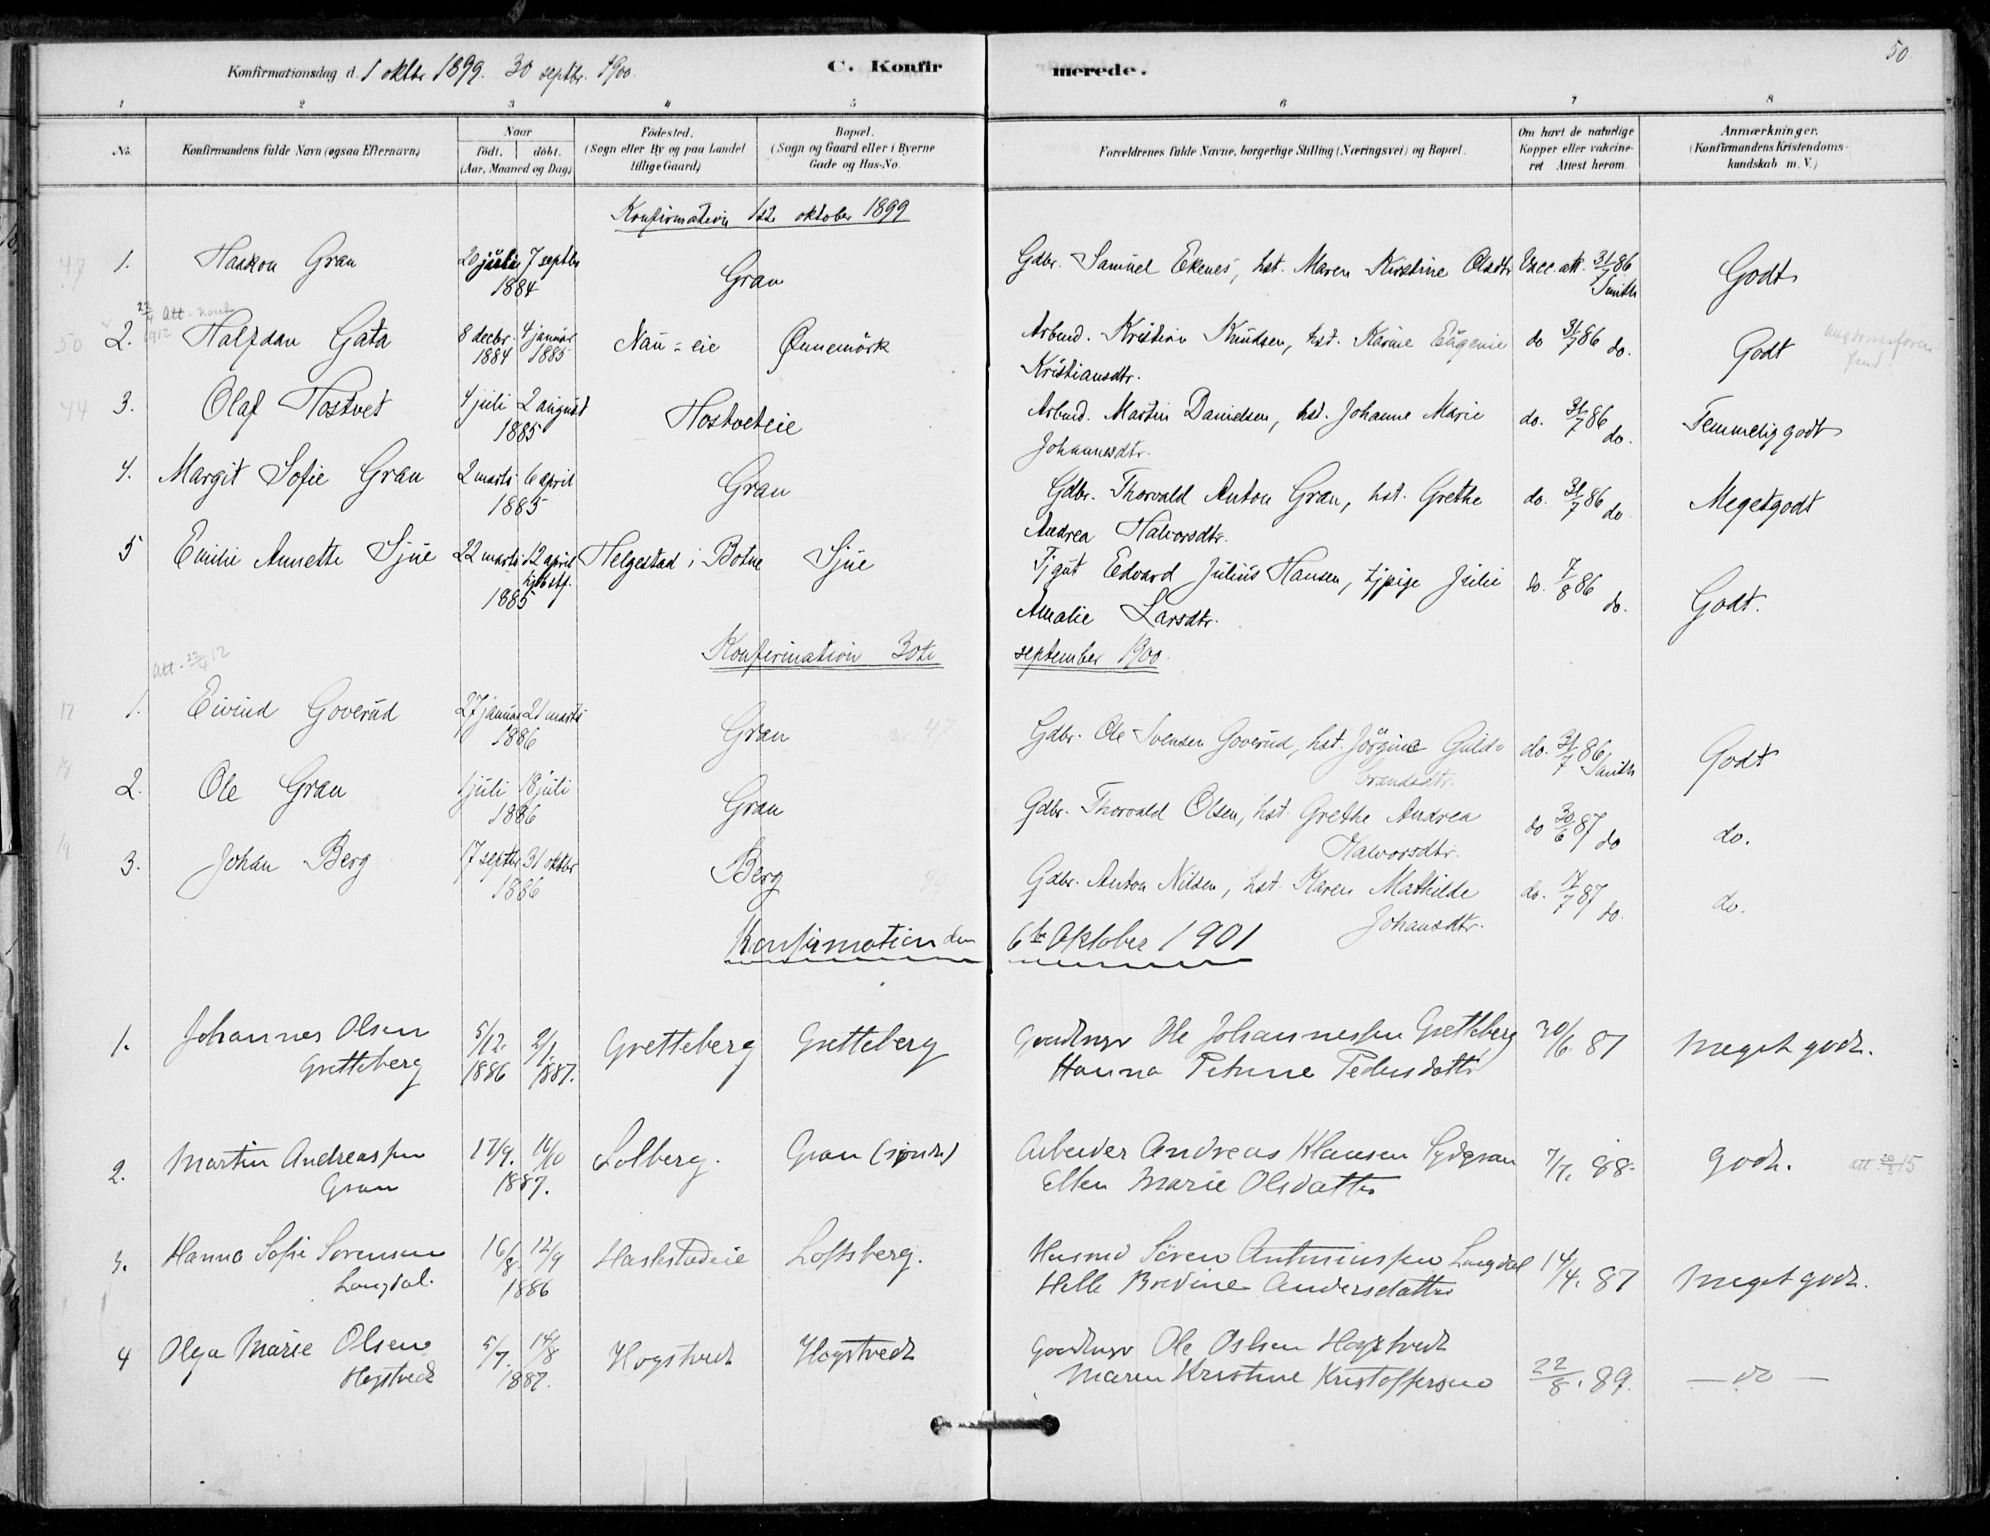 50
Konfirmationsdag d. 1 oktbr 1899. 30 septbr. 1900
C. Konfirmerede.
1 2 3 4 5 6 7 8
No.
Konfirmandens fulde Navn (ogsaa Efternavn)
Naar
födt. döbt.
(Aar, Maaned og Dag)
Födested.
(Sogn eller By og paa Landet
tillige Gaard)
Bopæl.
(Sogn og Gaard eller i Byerne
Gade og Hus-No.
Forældrenes fulde Navne, borgerlige Stilling (Næringsvei) og Bopæl.
Om havt de naturlige
Kopper eller vakcine-
ret Attest herom.
Anmærkninger.
(Konfirmandens Kristendoms-
kundskab m. V.)
Konfirmation 1ste oktober 1899
47 1. Haakon Gran 20 juli 7 septbr Gran Gdbr. Samuel Ekenes, hst. Maren Kirstine Olsdtr Vacc. att. 31/7 86 Godt
1884 Smith
22/4 Att. 1912
50 2. Halfdan Gata 8 decbr. 4 januar Nau-eie Önnemörk Arbmd. Kristian Knudsen, hst. Karine Eugenie do 31/7 86 do. Godt
1884 1885 Kristiansdtr.
44 3. Olaf Hostvet 4 juli 2 august Hostveteie Arbmd. Martin Danielsen, hst. Johanne Marie do. 31/7 86 do. Temmelig godt
1885 Johannesdtr.
4. Margit Sofie Gran 2 marts 6 april Gran Gdbr. Thorvald Anton Gran, hst. Grethe do. 31/7 86 do Megetgodt
1885 Andrea Halvorsdtr.
5 Emilie Annette Sjue 22 marts 12 april Helgestad i Botne Sjue Tjgut Edvard Julius Hansen, tjpige Julie do. 7/8 86 do. Godt.
1885 Amalie Larsdtr.
Konfirmation 30te september 1900.
Att. 22/4 12
17 1. Eivind Goverud 27 januar 21 marts Gran Gdbr. Ole Svensen Goverud, hst. Jörgine Guld- do. 31/7 86 Godt
1886 brandsdtr. Smith
18 2. Ole Gran 1 juli 18 juli Gran Gdbr. Thorvald Olsen, hst. Grethe Andrea do 30/6 87 do do.
1886 Halvorsdtr.
19 3. Johan Berg 17 septbr 31 oktbr Berg Gdbr. Anton Nilsen, hst. Karen Mathilde do. 17/7 87 do. do.
1886 Johansdtr.
Konfirmation den 6te Oktober 1901
1. Johannes Olsen 5/12. 2/1 Gretteberg Gretteberg Gaardbrgr Ole Johannessen Gretteberg 30/6 87 Meget godt.
Gretteberg 1886 1887. Hanna Petrine Pedersdatter
2. Martin Andreassen 17/9. 16/10 Solberg. Gran (söndre) Arbeider Andreas Klausen Sydgran 7/7. 88. godt. att. 15
Gran 1887. Ellen Marie Olsdatter
3. Hanna Sofie Sorensen 16/8 12/9 Haslestadeie Loftsberg. Husmd Sören Antoniussen Langdal 14/4. 87 Meget godt.
Langdal. 1886 Helle Bredine Andersdatter
4 Olga Marie Olsen 5/7. 14/8 Hogstvedt Hogstvedt Gaardbrgr Ole Olsen Hogstvedt
Hogstvedt 1887. Maren Kristine Kristoffersen 22/8. 89. — do —